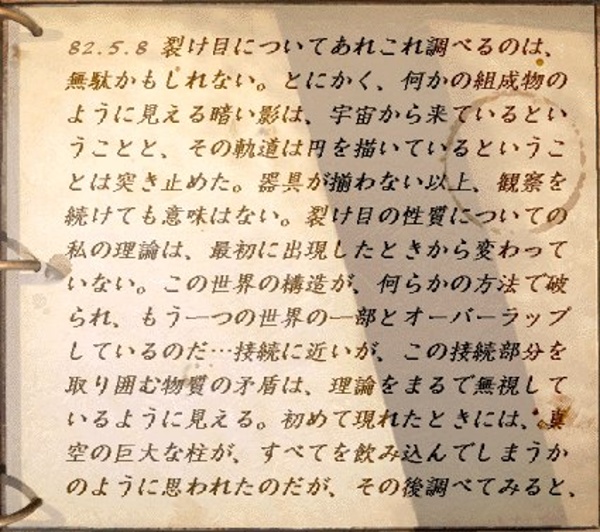 82.5.8 裂け目についてあれこれ調べるのは、
無駄かもしれない。とにかく、何かの組成物の
ように見える暗い影は、宇宙から来ているとい
うことと、その軌道は円を描いているというこ
とは突き止めた。器具が揃わない以上、観察を
続けても意味はない。裂け目の性質についての
私の理論は、最初に出現したときから変わって
いない。この世界の構造が、何らかの方法で破
られ、もう一つの世界の一部とオーバーラップ
しているのだ…接続に近いが、この接続部分を
取り囲む物質の矛盾は、理論をまるで無視して
いるように見える。初めて現れたときには、真
空の巨大な柱が、すべてを飲み込んでしまうか
のように思われたのだが、その後調べてみると、